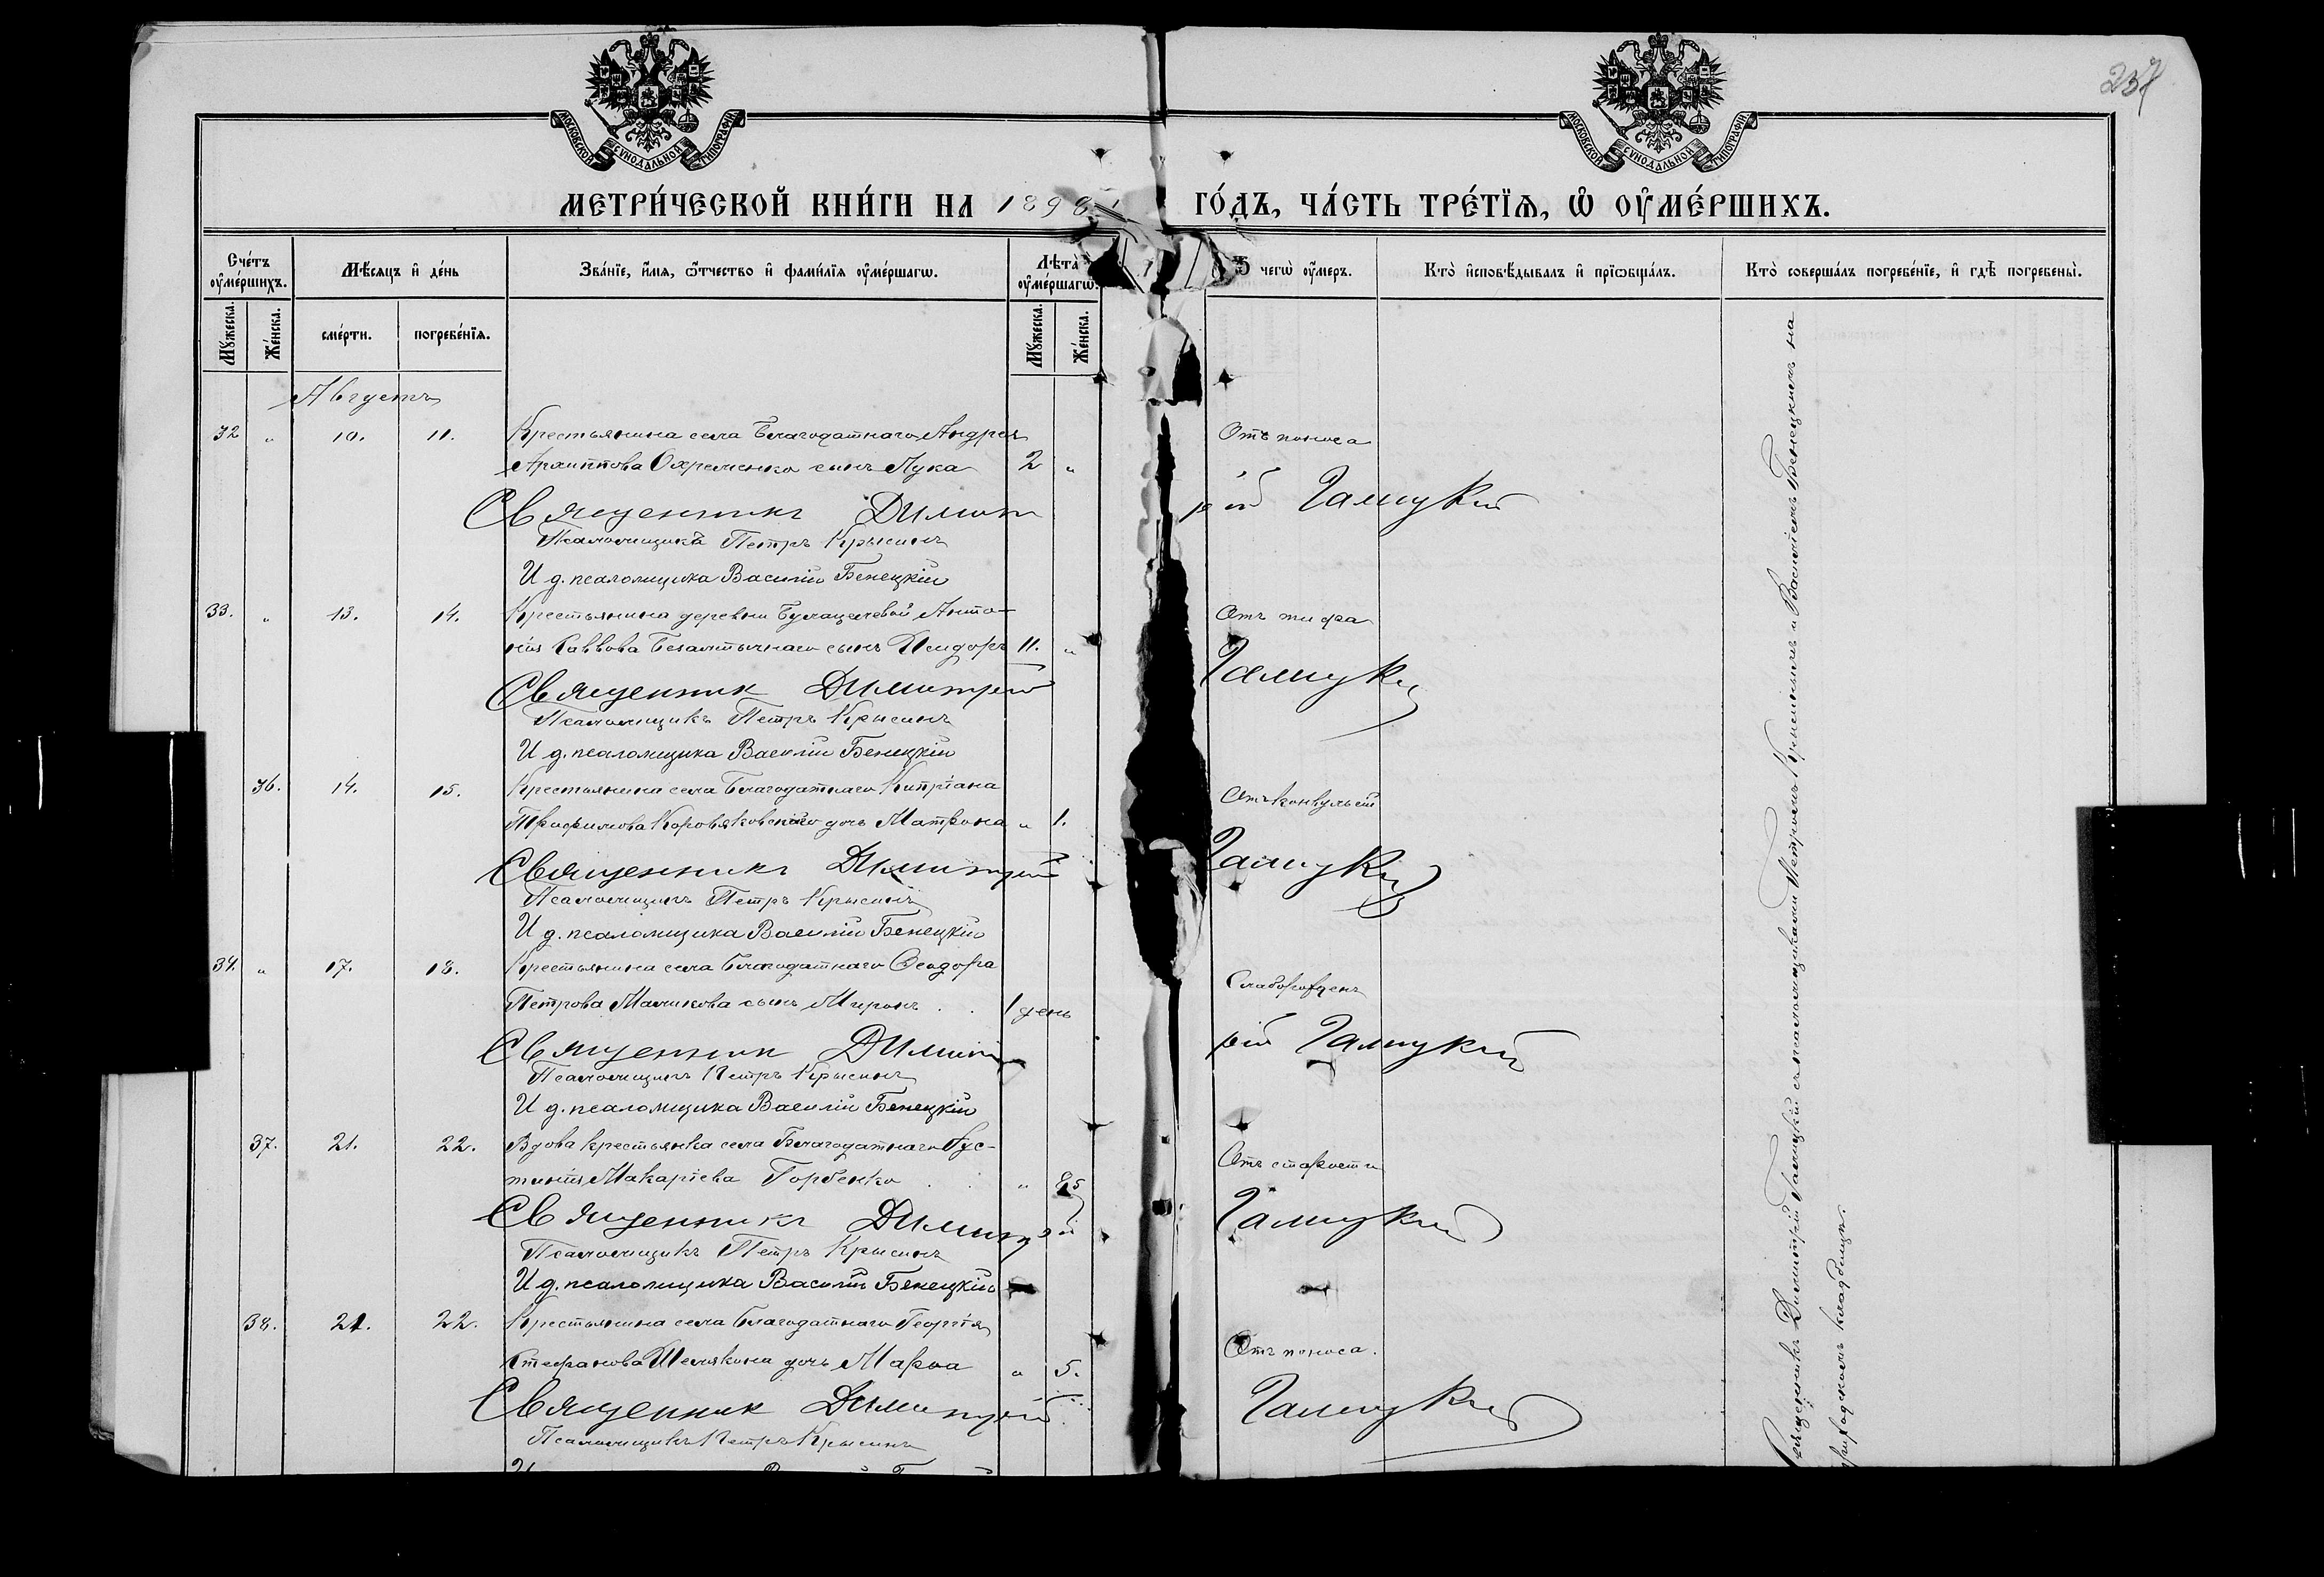 257
МОСКОВСКОЙ СѴНОДАЛЬНОЙ ТИПОГРАФІИ
МОСКОВСКОЙ СѴНОДАЛЬНОЙ ТИПОГРАФІИ
МЕТРИ́ЧЕСКОЙ КНИ́ГИ НА 1898 ГО́ДЪ, ЧА́СТЬ ТРЕ́ТЇѦ, Ѡ҆ ОУ҆МЕ́РШИХЪ.
Сче́тъ оу҆ме́ршихъ.
Мѣ́сѧцъ и҆ де́нь
Зва́нїе, и҆́мѧ, ѻ҆́тчество и҆ фами́лїѧ оу҆ме́ршагѡ.
Лѣ̑та оу҆ме́ршагѡ.
чегѡ̀ оу҆́меръ.
Кто̀ и҆сповѣ́дывалъ и҆ прїѡбща́лъ.
Кто̀ соверша́лъ погребе́нїе, и҆ гдѣ̀ погребены̀.
Мꙋ́жеска.
Же́нска.
сме́рти.
погребе́нїѧ.
Мꙋ́жеска.
Же́нска.
Августъ
32 " 10. 11. Крестьянина села Благодатнаго Андрея
Архиппова Охременко сынъ Лука 2 " Отъ поноса
Священникъ Димитрій Галицкій
Псаломщикъ Петръ Крысинъ
И д. псаломщика Василій Бенецкій
33. " 13. 14. Крестьянина деревни Антонія Саввова сынъ Исидоръ 11. " Отъ тифа
Священник Димитрій Галицкій
Псаломщикъ Петръ Крысинъ
И д. псаломщика Василій Бенецкій
36. 14. 15. Крестьянина села Благодатнаго Кипріана
Трофимова Коровяковскаго дочь Матрона " 1. Отъ конвульсій
Священникъ Димитрій Галицкій
Псаломщикъ Петръ Крысинъ
И д. псаломщика Василій Бенецкій
34. " 17. 18. Крестьянина села Благодатнаго Ѳеодора
Петрова Маликова сынъ Миронъ . . 1 день Слаборожден.
Священник Димитрій Галицкій
Псаломщикъ Петръ Крысинъ
И д. псаломщика Василій Бенецкій
37. 21. 22. Вдова крестьянка села Благодатнаго Іус-
тинія Макаріева Горбенко . . " 85 Отъ старости
Священникъ Димитрій Галицкій
Псаломщикъ Петръ Крысинъ
И д. псаломщика Василій Бенецкій
38. 21. 22. Крестьянина села Благодатнаго Георгія
Стефанова Шелякина дочь Марѳа " 5. Отъ поноса.
Священник Димитрій Галицкій
Псаломщикъ Петръ Крысинъ
Священникъ Димитрій Галицкій съ псаломщиками Петромъ Крысинымъ и Василіемъ Бенецкимъ на
приходскомъ кладбищѣ.